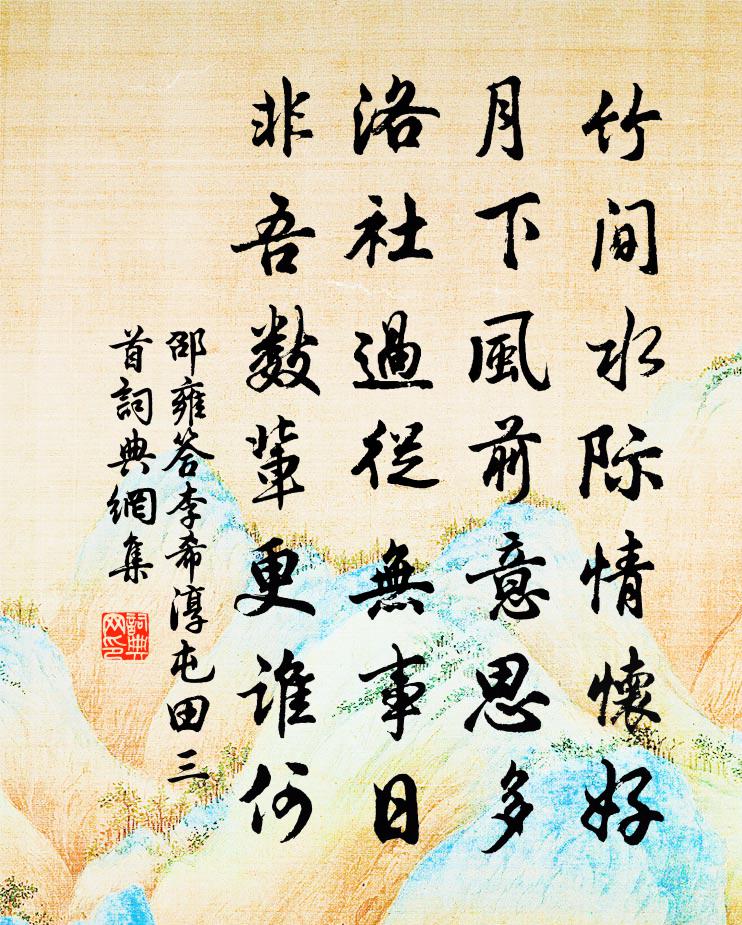 竹间水际情懷好
月下風前意思多
洛社過從無事日
非吾數輩更谁何
邵雍答李希淳屯田三
首詞典網集
詞典
网印